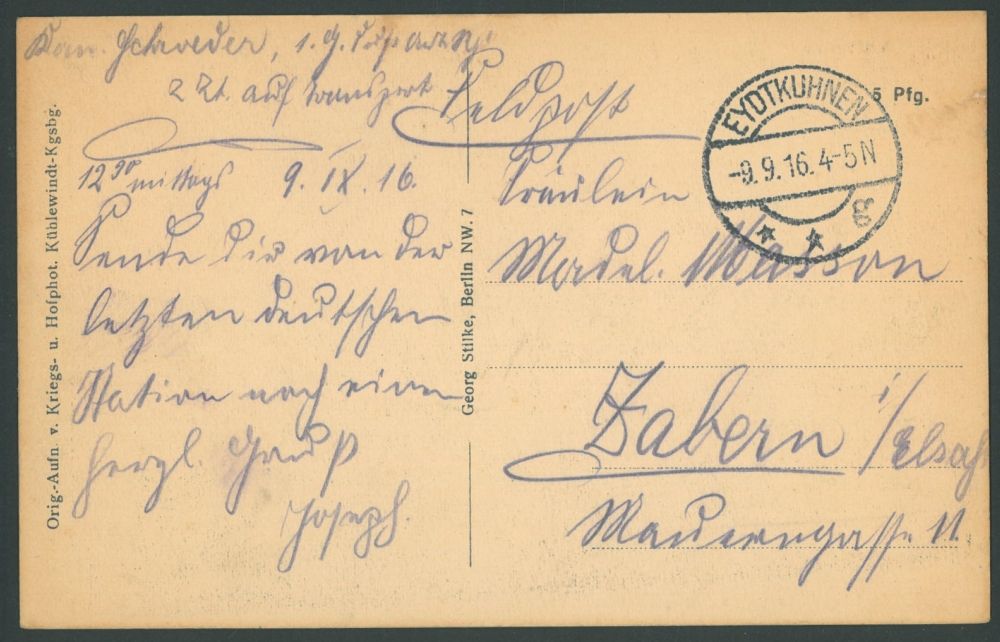 Kan. Schroeder, 1. G.
z. Zt. auf Transport
Feldpost
5 Pfg.
EYDTKUHNEN
-9.9.16.4-5N
* * g
12³⁰ mittags 9. IX. 16.
Sende dir von der
letzten deutschen
Station noch einen
herzl. Gruß
Joseph.
Fräulein
Madel. Masson
Zabern i/Elsaß
Mauerngasse 11.
Orig.-Aufn. v. Kriegs- u. Hofphot. Kühlewindt-Kgsbg.
Georg Stilke, Berlin NW. 7